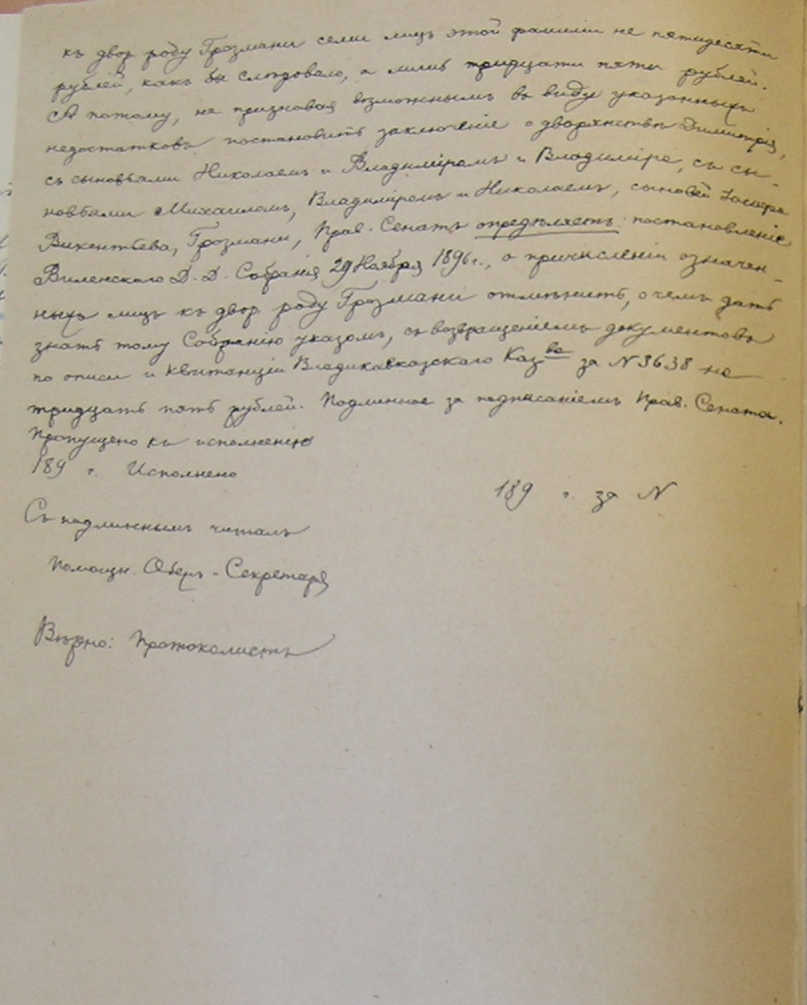 къ двор. роду Грозмани семи лицъ этой фамиліи не пятидесяти
рублей, какъ бы слѣдовало, а лишь тридцати пяти рублей.
А потому, не признавая возможнымъ въ виду указанныхъ
недостатковъ постановить заключеніе о дворянствѣ Димитрія,
съ сыновьями Николаемъ и Владиміромъ и Владиміра, съ сы-
новьями Михаиломъ, Владиміромъ и Николаемъ, сыновей
Викентьева, Грозмани, Прав. Сенатъ опредѣляетъ: постановленіе
Виленскаго Д. Д. Собранія 29 Ноября 1896 г., о причисленіи означен-
ныхъ лицъ къ двор. роду Грозмани отмѣнить, о чемъ дать
знать тому Собранію указомъ, съ возвращеніемъ документовъ
по описи и квитанціи Владикавказскаго Каз-ва за N 3638 на
тридцать пять рублей. Подлинное за подписаніемъ Прав. Сената.
Пропущено къ исполненію
189 г. Исполнено
189 г. за N
Съ подлиннымъ читалъ
Помощн. Оберъ-Секретаря
Вѣрно: Протоколистъ